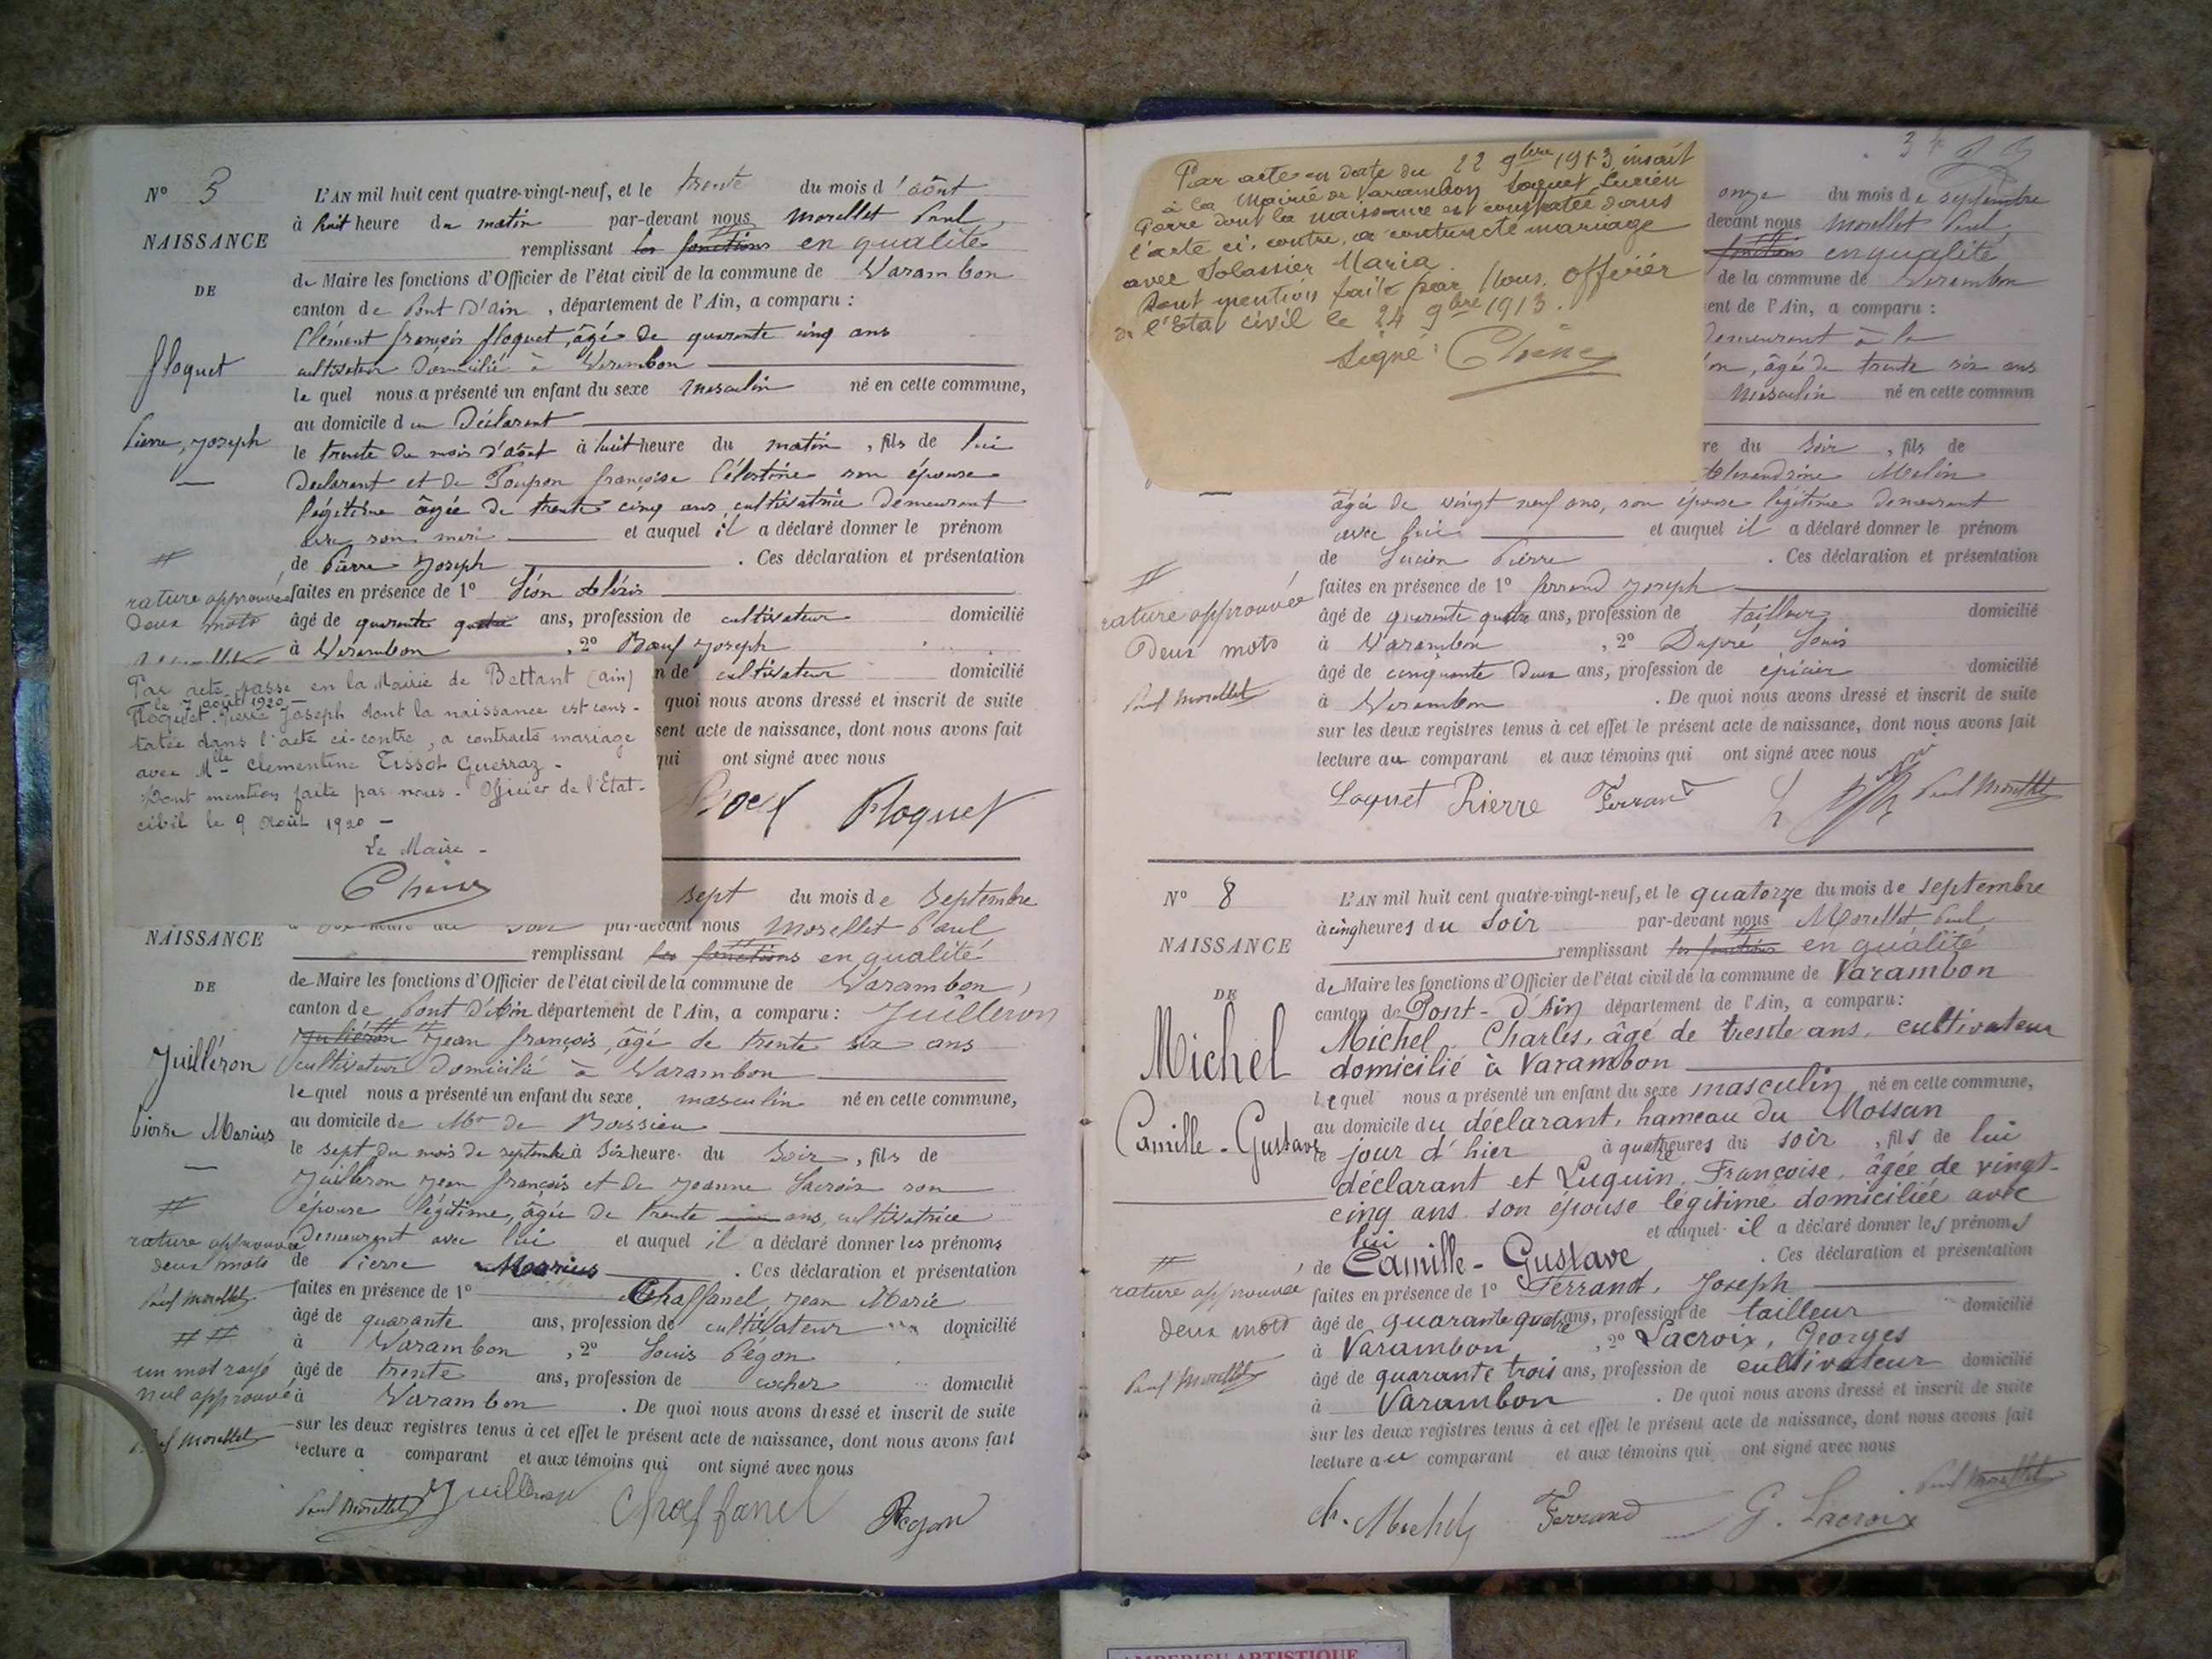 N° 5
NAISSANCE
DE
Floquet
Pierre, Joseph
L'AN mil huit cent quatre-vingt-neuf, et le trente du mois d'août
à huit heure du matin par-devant nous Morellet Paul,
remplissant les fonctions en qualité
de Maire les fonctions d'Officier de l'état civil de la commune de Varambon
canton de Pont d'ain, département de l'Ain, a comparu :
Clément françois floquet, âgé de quarante cinq ans
cultivateur domicilié à Varambon
lequel nous a présenté un enfant du sexe masculin né en cette commune,
au domicile du Déclarant
le trente du mois d'août à huit heure du matin, fils de lui
Déclarant et de Poupon françoise Célestine son épouse
légitime âgée de trente cinq ans cultivatrice demeurant
avec son mari et auquel il a déclaré donner le prénom
de Pierre Joseph. Ces déclaration et présentation
faites en présence de 1°
âgé de quarante quatre ans, profession de cultivateur domicilié
à Varambon, 2° Bœuf Joseph
n de cultivateur domicilié
quoi nous avons dressé et inscrit de suite
sent acte de naissance, dont nous avons fait
qui ont signé avec nous
Boeuf Floquet
#
rature approuvée
deux mots
Par acte passé en la Mairie de Bettant (ain)
le 7 août 1920
Floquet Pierre Joseph dont la naissance est cons-
tatée dans l'acte ci-contre, a contracté mariage
avec Mlle Clementine Tissot Guerraz -
Dont mention faite par nous - Officier de l'Etat-
civil le 9 Août 1920 -
Le Maire -
NAISSANCE
DE
Juilléron
Pierre Marius
sept du mois de Septembre
par-devant nous Morellet Paul
remplissant les fonctions en qualité
de Maire les fonctions d'Officier de l'état civil de la commune de Varambon,
canton de Pont d'Ain département de l'Ain, a comparu : Juilleron
Jean françois, âgé de trente six ans
cultivateur domicilié à Varambon
lequel nous a présenté un enfant du sexe masculin né en cette commune,
au domicile de Mr de Boissieu
le sept du mois de septembre à six heure du Soir, fils de
Juilleron Jean françois et de Jeanne Lacroix son
épouse légitime, âgée de trente ans, cultivatrice
demeurant avec lui et auquel il a déclaré donner les prénoms
de Pierre Marius. Ces déclaration et présentation
faites en présence de 1° Chaffanel, Jean Marie
âgé de quarante ans, profession de cultivateur domicilié
à Varambon, 2° Louis Pégon
âgé de trente ans, profession de cocher domicilié
à Varambon. De quoi nous avons dressé et inscrit de suite
sur les deux registres tenus à cet effet le présent acte de naissance, dont nous avons fait
lecture a comparant et aux témoins qui ont signé avec nous
Paul Morellet Juilleron Chaffanel Pegon
#
rature approuvée
deux mots
Paul Morellet
# #
un mot rayé
nul approuvé
Paul Morellet
Par acte en date du 22 9bre 1913 inscrit
à la Mairie de Varambon Loquet Lucien
Pierre dont la naissance est constatée dans
l'acte ci-contre, a contracté mariage
avec Solassier Maria
Dont mention faite par Nous, Officier
de l'Etat civil le 24 9bre 1913.
Signé :
onze du mois de septembre
devant nous Morellet Paul,
fonctions en qualité
de la commune de Varambon
ent de l'Ain, a comparu :
demeurant à la
on, âgé de trente six ans
masculin né en cette commun
re du Soir, fils de
Alexandrine Melin
âgée de vingt neuf ans, son épouse légitime demeurant
avec lui et auquel il a déclaré donner le prénom
de Lucien Pierre. Ces déclaration et présentation
faites en présence de 1° Ferrand Joseph
âgé de quarante quatre ans, profession de tailleur domicilié
à Varambon, 2° Dupré Louis
âgé de cinquante deux ans, profession de épicier domicilié
à Varambon. De quoi nous avons dressé et inscrit de suite
sur les deux registres tenus à cet effet le présent acte de naissance, dont nous avons fait
lecture au comparant et aux témoins qui ont signé avec nous
Loquet Pierre Ferrand Paul Morellet
#
rature approuvée
deux mots
Paul Morellet
N° 8
NAISSANCE
DE
Michel
Camille-Gustave
L'AN mil huit cent quatre-vingt-neuf, et le quatorze du mois de septembre
à cinq heures du Soir par-devant nous Morellet Paul,
remplissant les fonctions en qualité
de Maire les fonctions d'Officier de l'état civil de la commune de Varambon
canton de Pont-d'Ain département de l'Ain, a comparu :
Michel, Charles, âgé de trente ans, cultivateur
domicilié à Varambon
lequel nous a présenté un enfant du sexe masculin né en cette commune,
au domicile du déclarant, hameau du Mossan
le jour d'hier à quatre heures du soir, fils de lui
déclarant et Luquin, Françoise, âgée de vingt-
cinq ans son épouse légitime domiciliée avec
lui et auquel il a déclaré donner les prénoms
de Camille-Gustave. Ces déclaration et présentation
faites en présence de 1° Ferrand, Joseph
âgé de quarante quatre ans, profession de tailleur domicilié
à Varambon, 2° Lacroix, Georges
âgé de quarante trois ans, profession de cultivateur domicilié
à Varambon. De quoi nous avons dressé et inscrit de suite
sur les deux registres tenus à cet effet le présent acte de naissance, dont nous avons fait
lecture au comparant et aux témoins qui ont signé avec nous
Paul Morellet
ch. Michel Ferrand G. Lacroix
#
rature approuvée
deux mots
Paul Morellet
AMBERIEU ARTISTIQUE